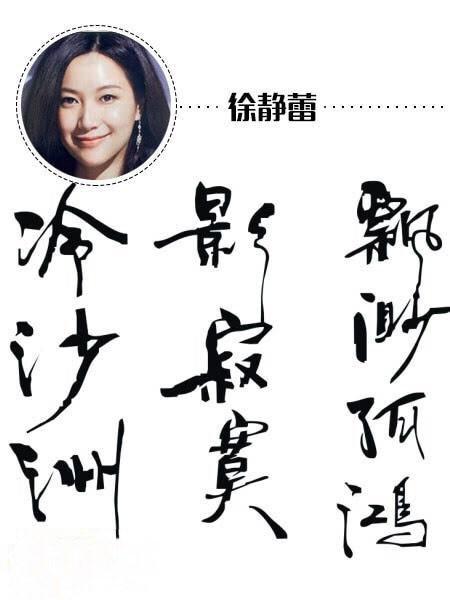 徐静蕾
飘渺孤鸿
影寂寞
冷沙洲